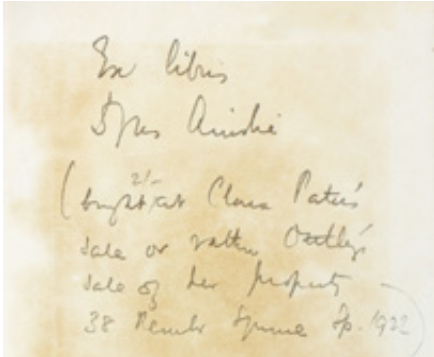 Ex libris
Ainslie
(bought at Clara Pater's
2/-
sale or rather
sale of her property
38 Square Sp. 1922